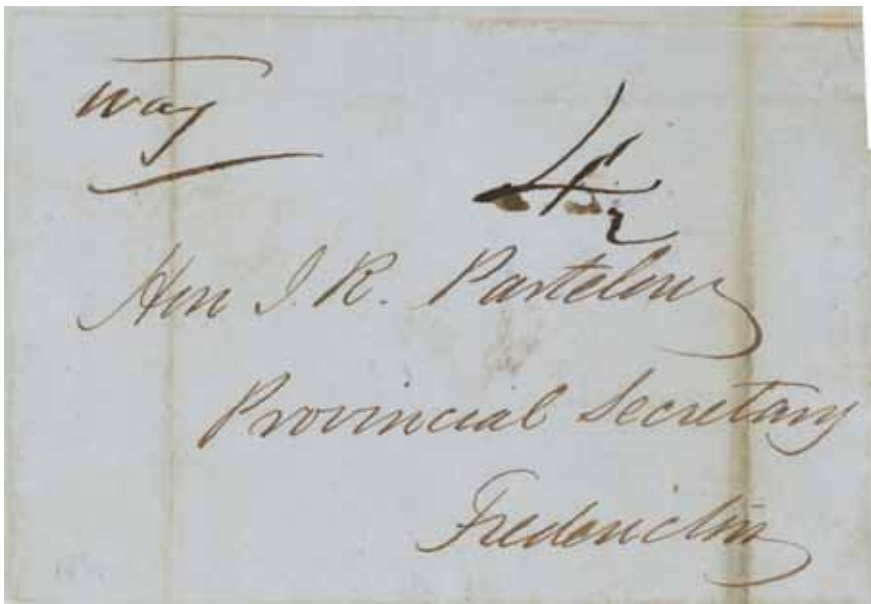 Way
4½
Hon J. R. Partelow
Provincial Secretary
Fredericton